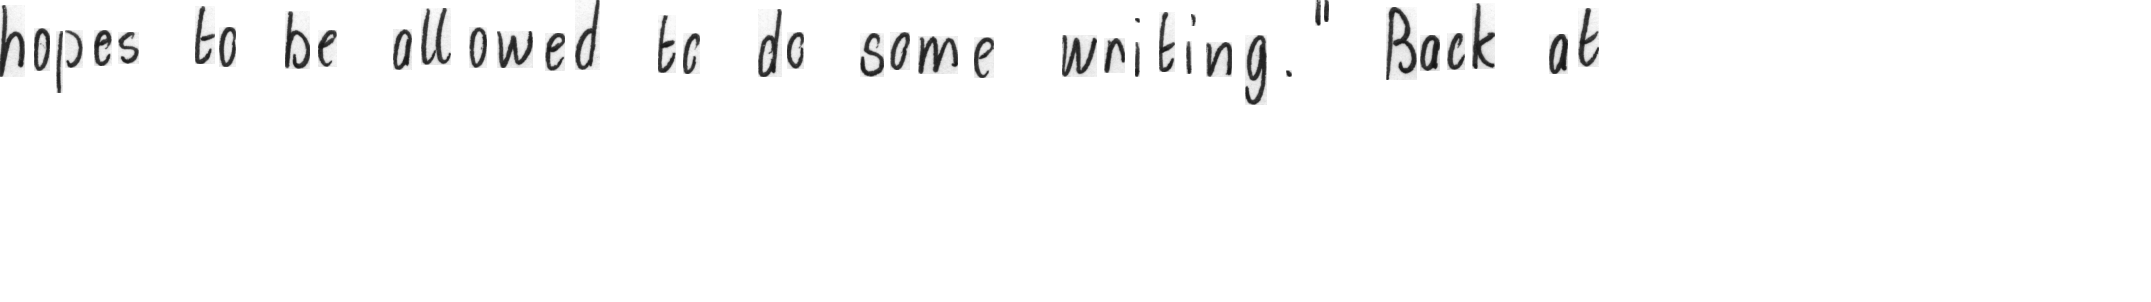 hopes to be allowed to do some writing." Back at